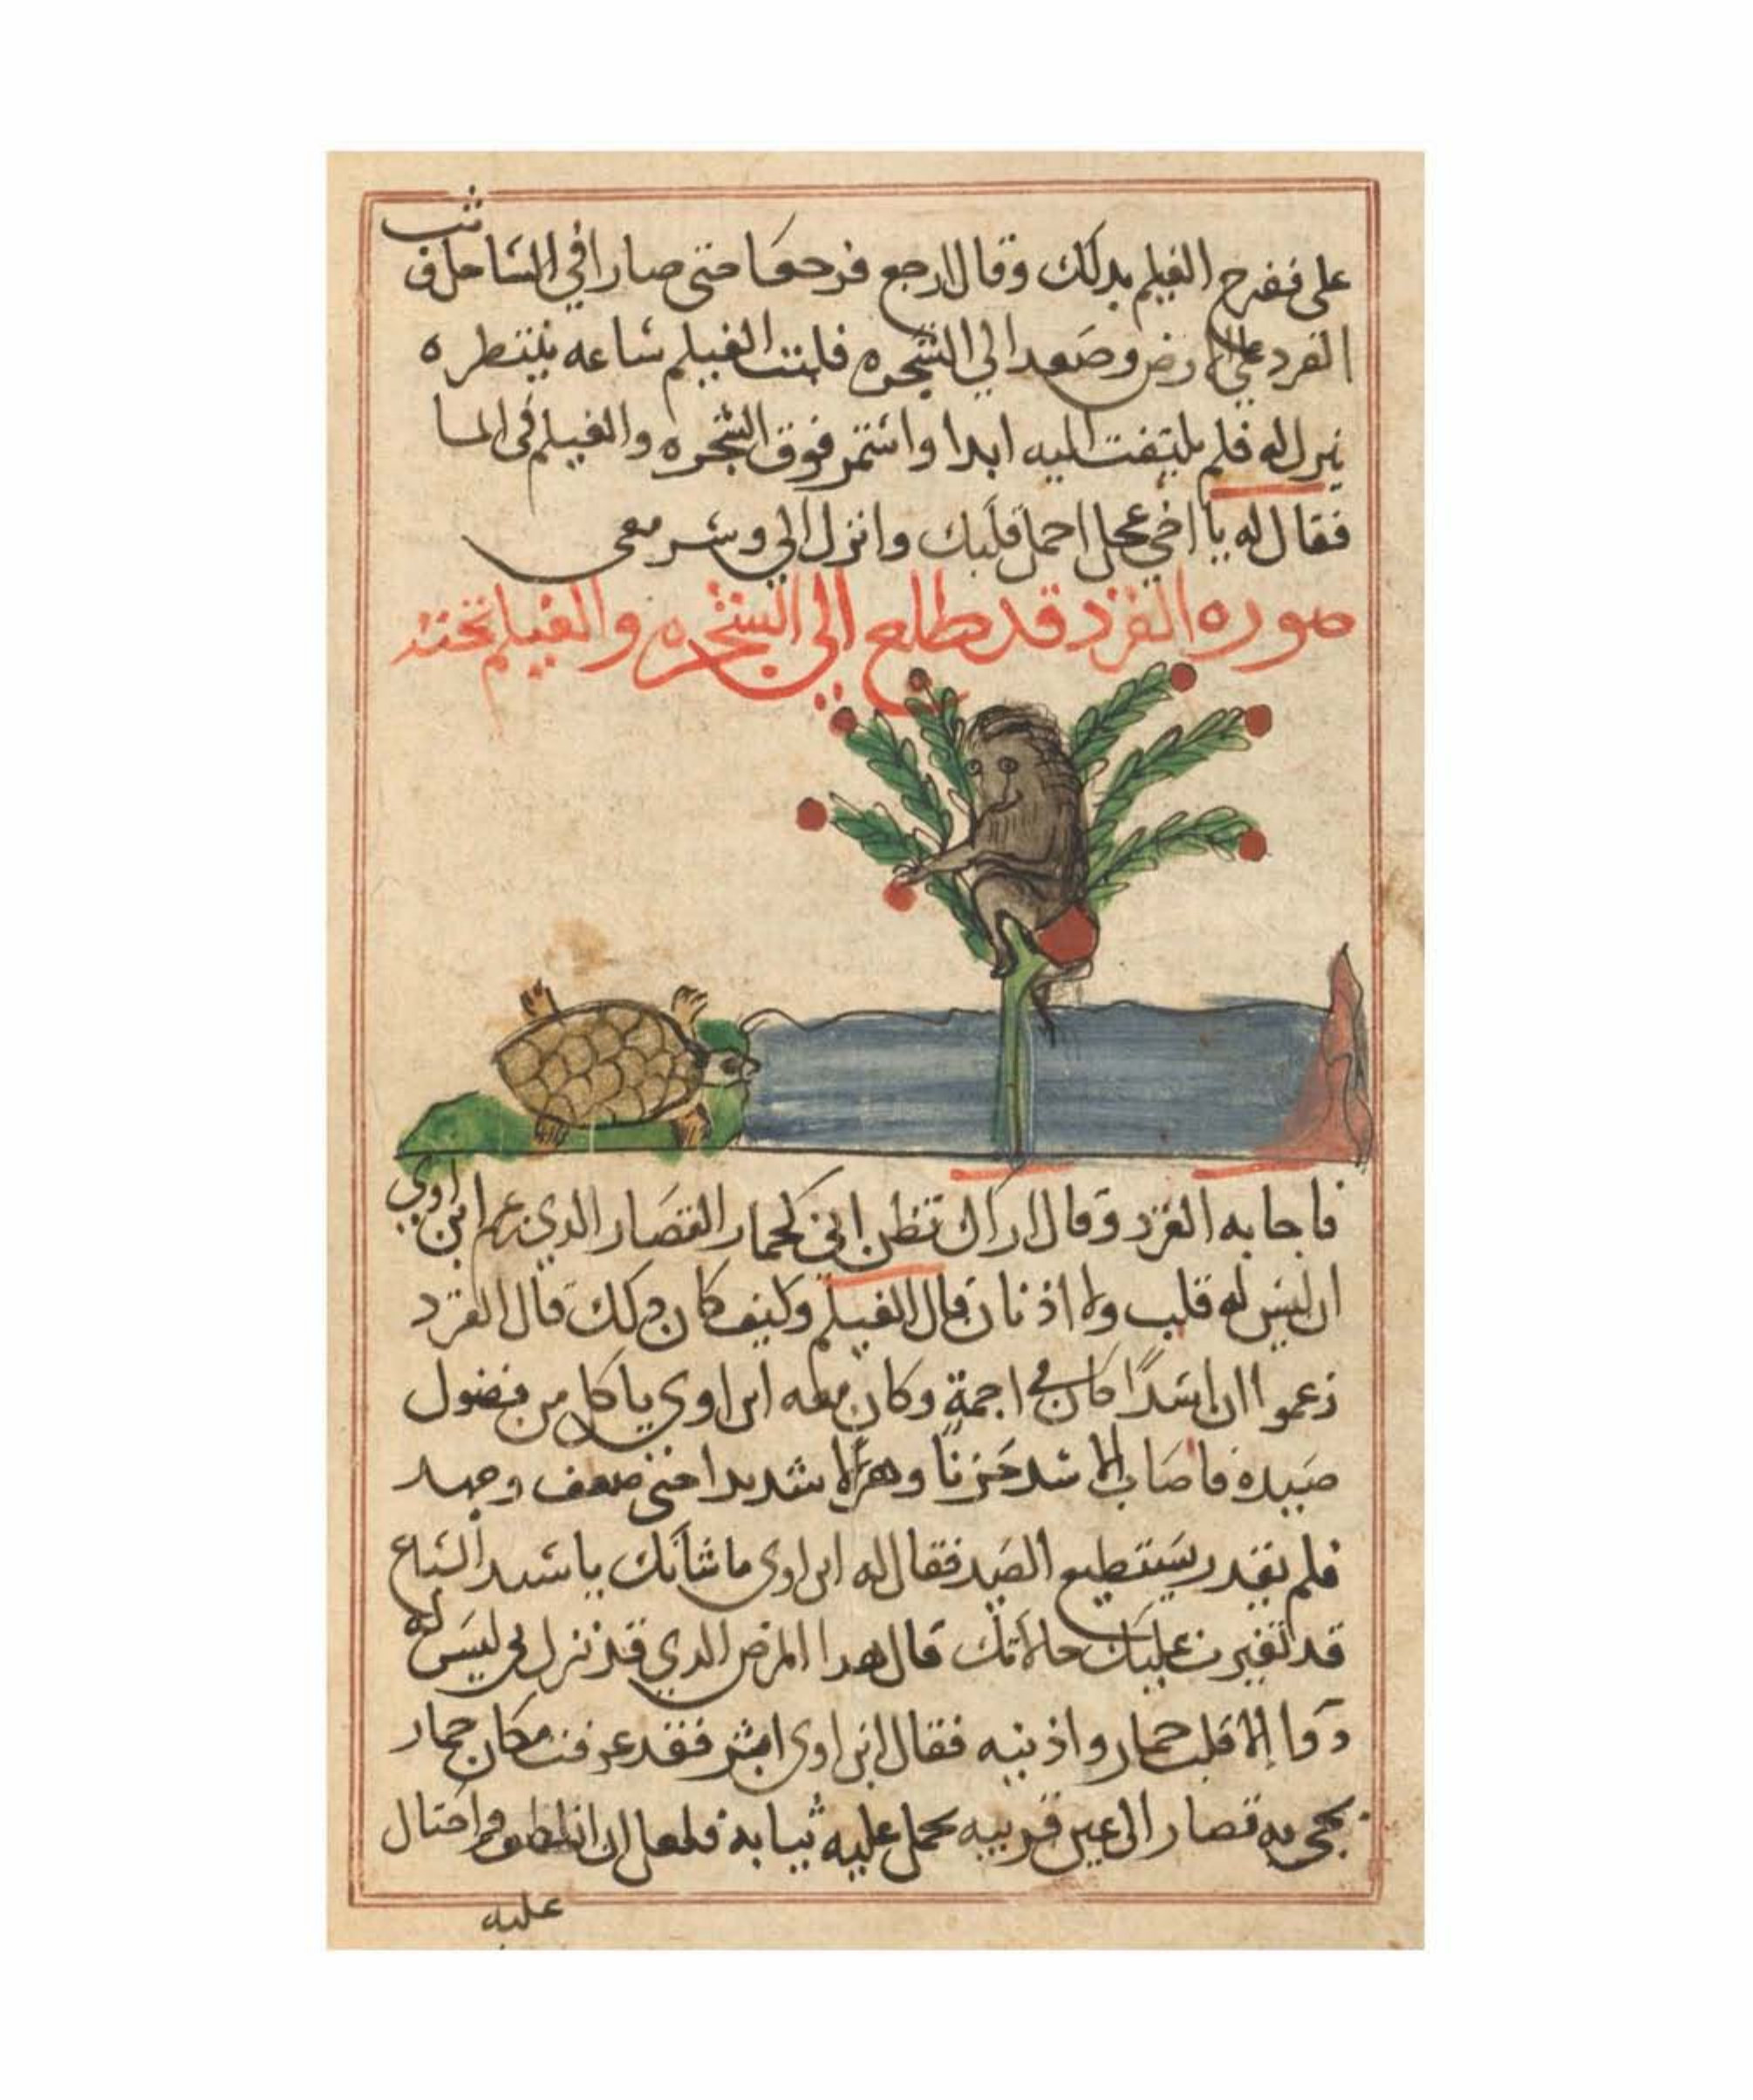 على ففرح الغيلم بدلك وقال ارجع فرجعا حتى صارا في الساحل فوثب
القرد على الارض وصعد الي الشجره فلبث الغيلم ساعه ينتظره
ينزل له فلم يلتفت اليه ابدا واستمر فوق الشجره والغيلم في الما
فقال له يا اخي عجل احمل قلبك وانزل الي وسر معي
صوره القرد قد طلع الي الشجره والغيلم تحته
فاجابه القرد وقال اراك تظن اني كحمار القصار الدي زعم ابن اوي
ان ليس له قلب ولا اذنان قال الغيلم وكيف كان دلك قال القرد
زعموا ان اسدًا كان في اجمة وكان معه ابن اوي ياكل من فضول
صيده فاصاب الاسد حزنًا وهزالا شديدا حتى ضعف وجهد
فلم يقدر يستطيع الصيد فقال له ابن اوى ما شأنك يا سيد السباع
قد تغيرت عليك حالاتك قال هدا المرض الدي قد نزل بي ليس له
دوا الا قلب حمار واذنيه فقال ابن اوى ابشر فقد عرفت مكان حمار
يجي به قصار الى عين قريبه يحمل عليه ثيابه فلعل ان انطلق واحتال
عليه